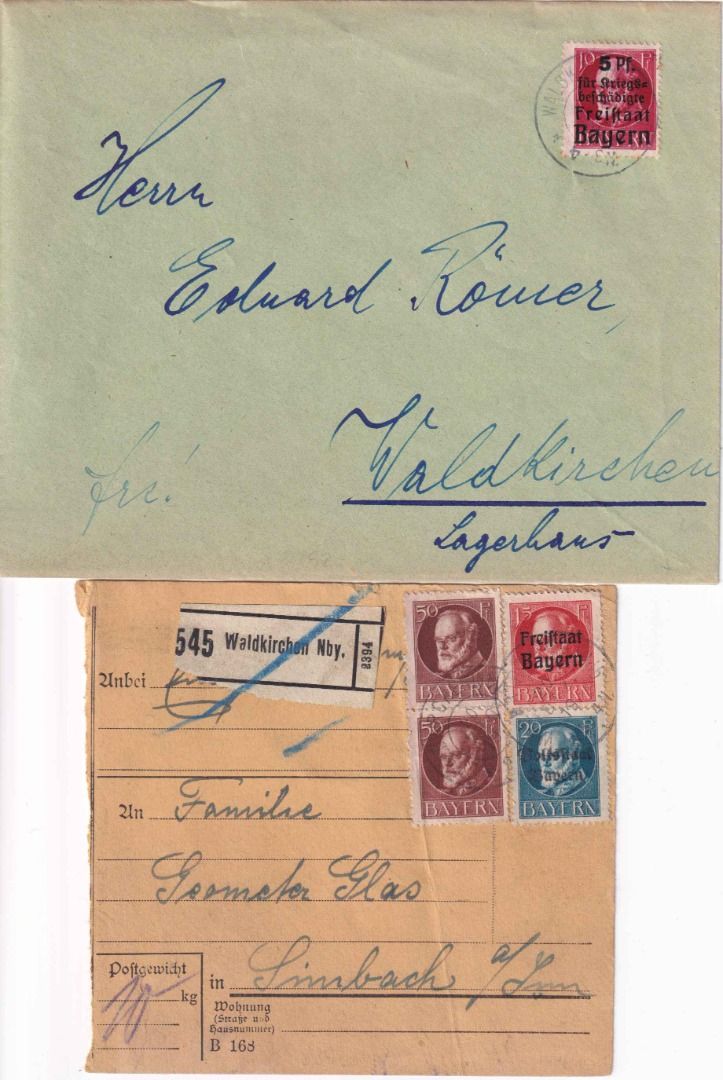 10 Pf
5 Pf.
für Kriegs=
beschädigte
Freistaat
Bayern
Herrn
Eduard Römer,
Waldkirchen
Lagerhaus
frei!
545 Waldkirchen Nby.
2394
50 Pf
BAYERN
15 Pf
Freistaat
Bayern
BAYERN
50 Pf
BAYERN
20 Pf
Volksstaat
Bayern
BAYERN
Anbei
An Familie
Geometer Glas
in Simbach a/Inn
Postgewicht
10 kg
Wohnung
(Straße und
Hausnummer)
B 168